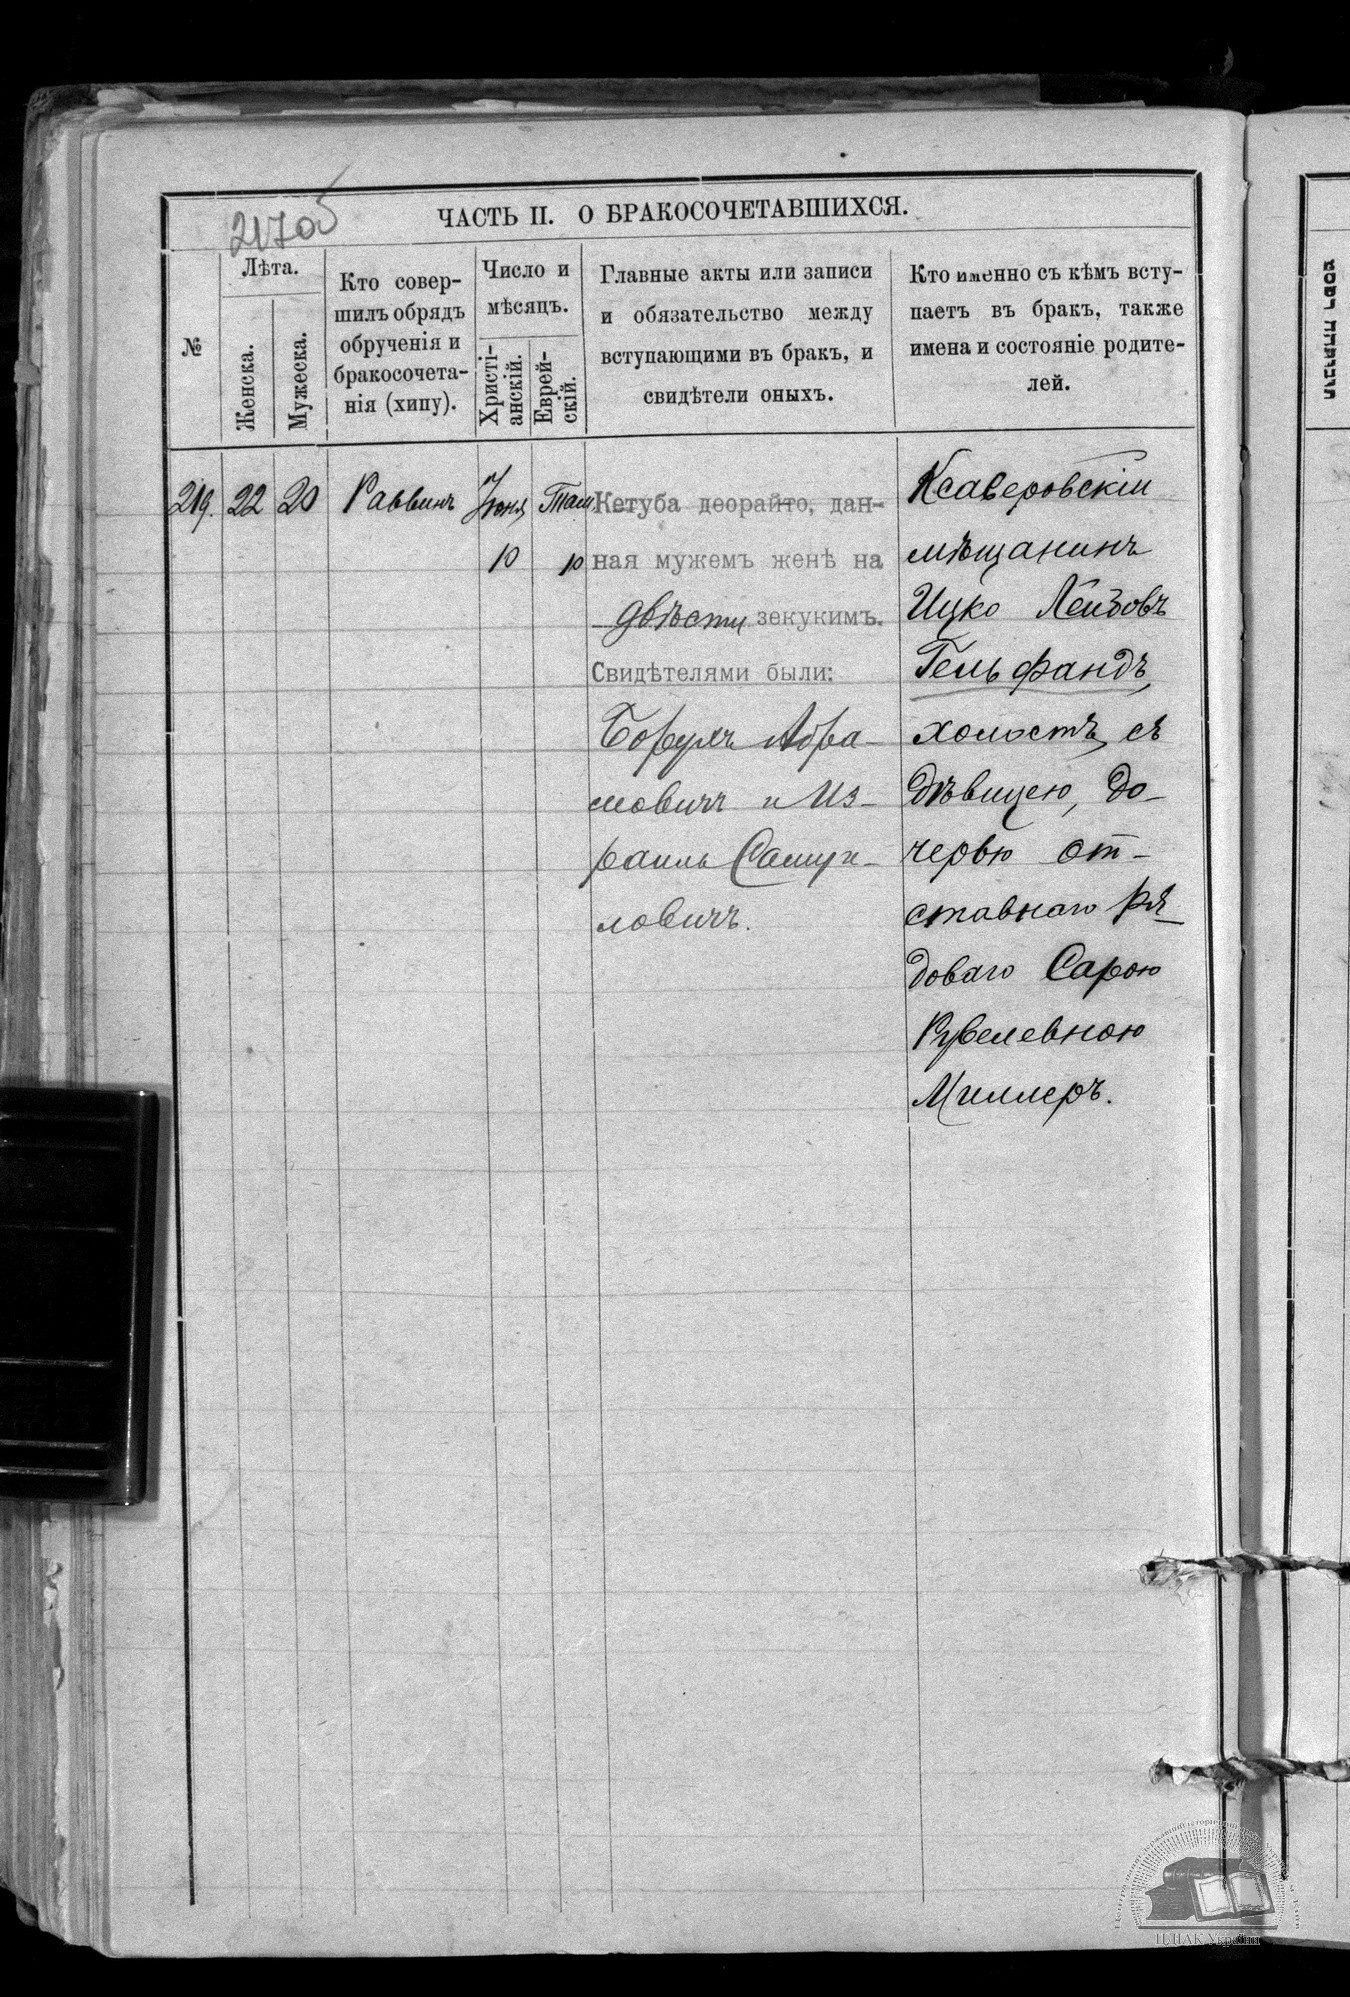 217об
ЧАСТЬ II. О БРАКОСОЧЕТАВШИХСЯ.
№
Лѣта.
Женска.
Мужеска.
Кто совер-
шилъ обрядъ
обрученія и
бракосочета-
нія (хипу).
Число и
мѣсяцъ.
Христі-
анскій.
Еврей-
скій.
Главные акты или записи
и обязательство между
вступающими въ бракъ, и
свидѣтели оныхъ.
Кто именно съ кѣмъ всту-
паетъ въ бракъ, также
имена и состояніе родите-
лей.
219.
22
20
Раввинъ
Іюня
10
Там.
10
Кетуба деорайто, дан-
ная мужемъ женѣ на
двѣсти зекукимъ.
Свидѣтелями были:
Борухъ Абра-
мовичъ и Из-
раиль Самуи-
ловичъ.
Ксаверовскій
мѣщанинъ
Ицко Лейбовъ
Гельфандъ,
холостъ, съ
дѣвицею, до-
черью от-
ставнаго ря-
доваго Сарою
Рувелевною
Миллеръ.
ЦДІАК України